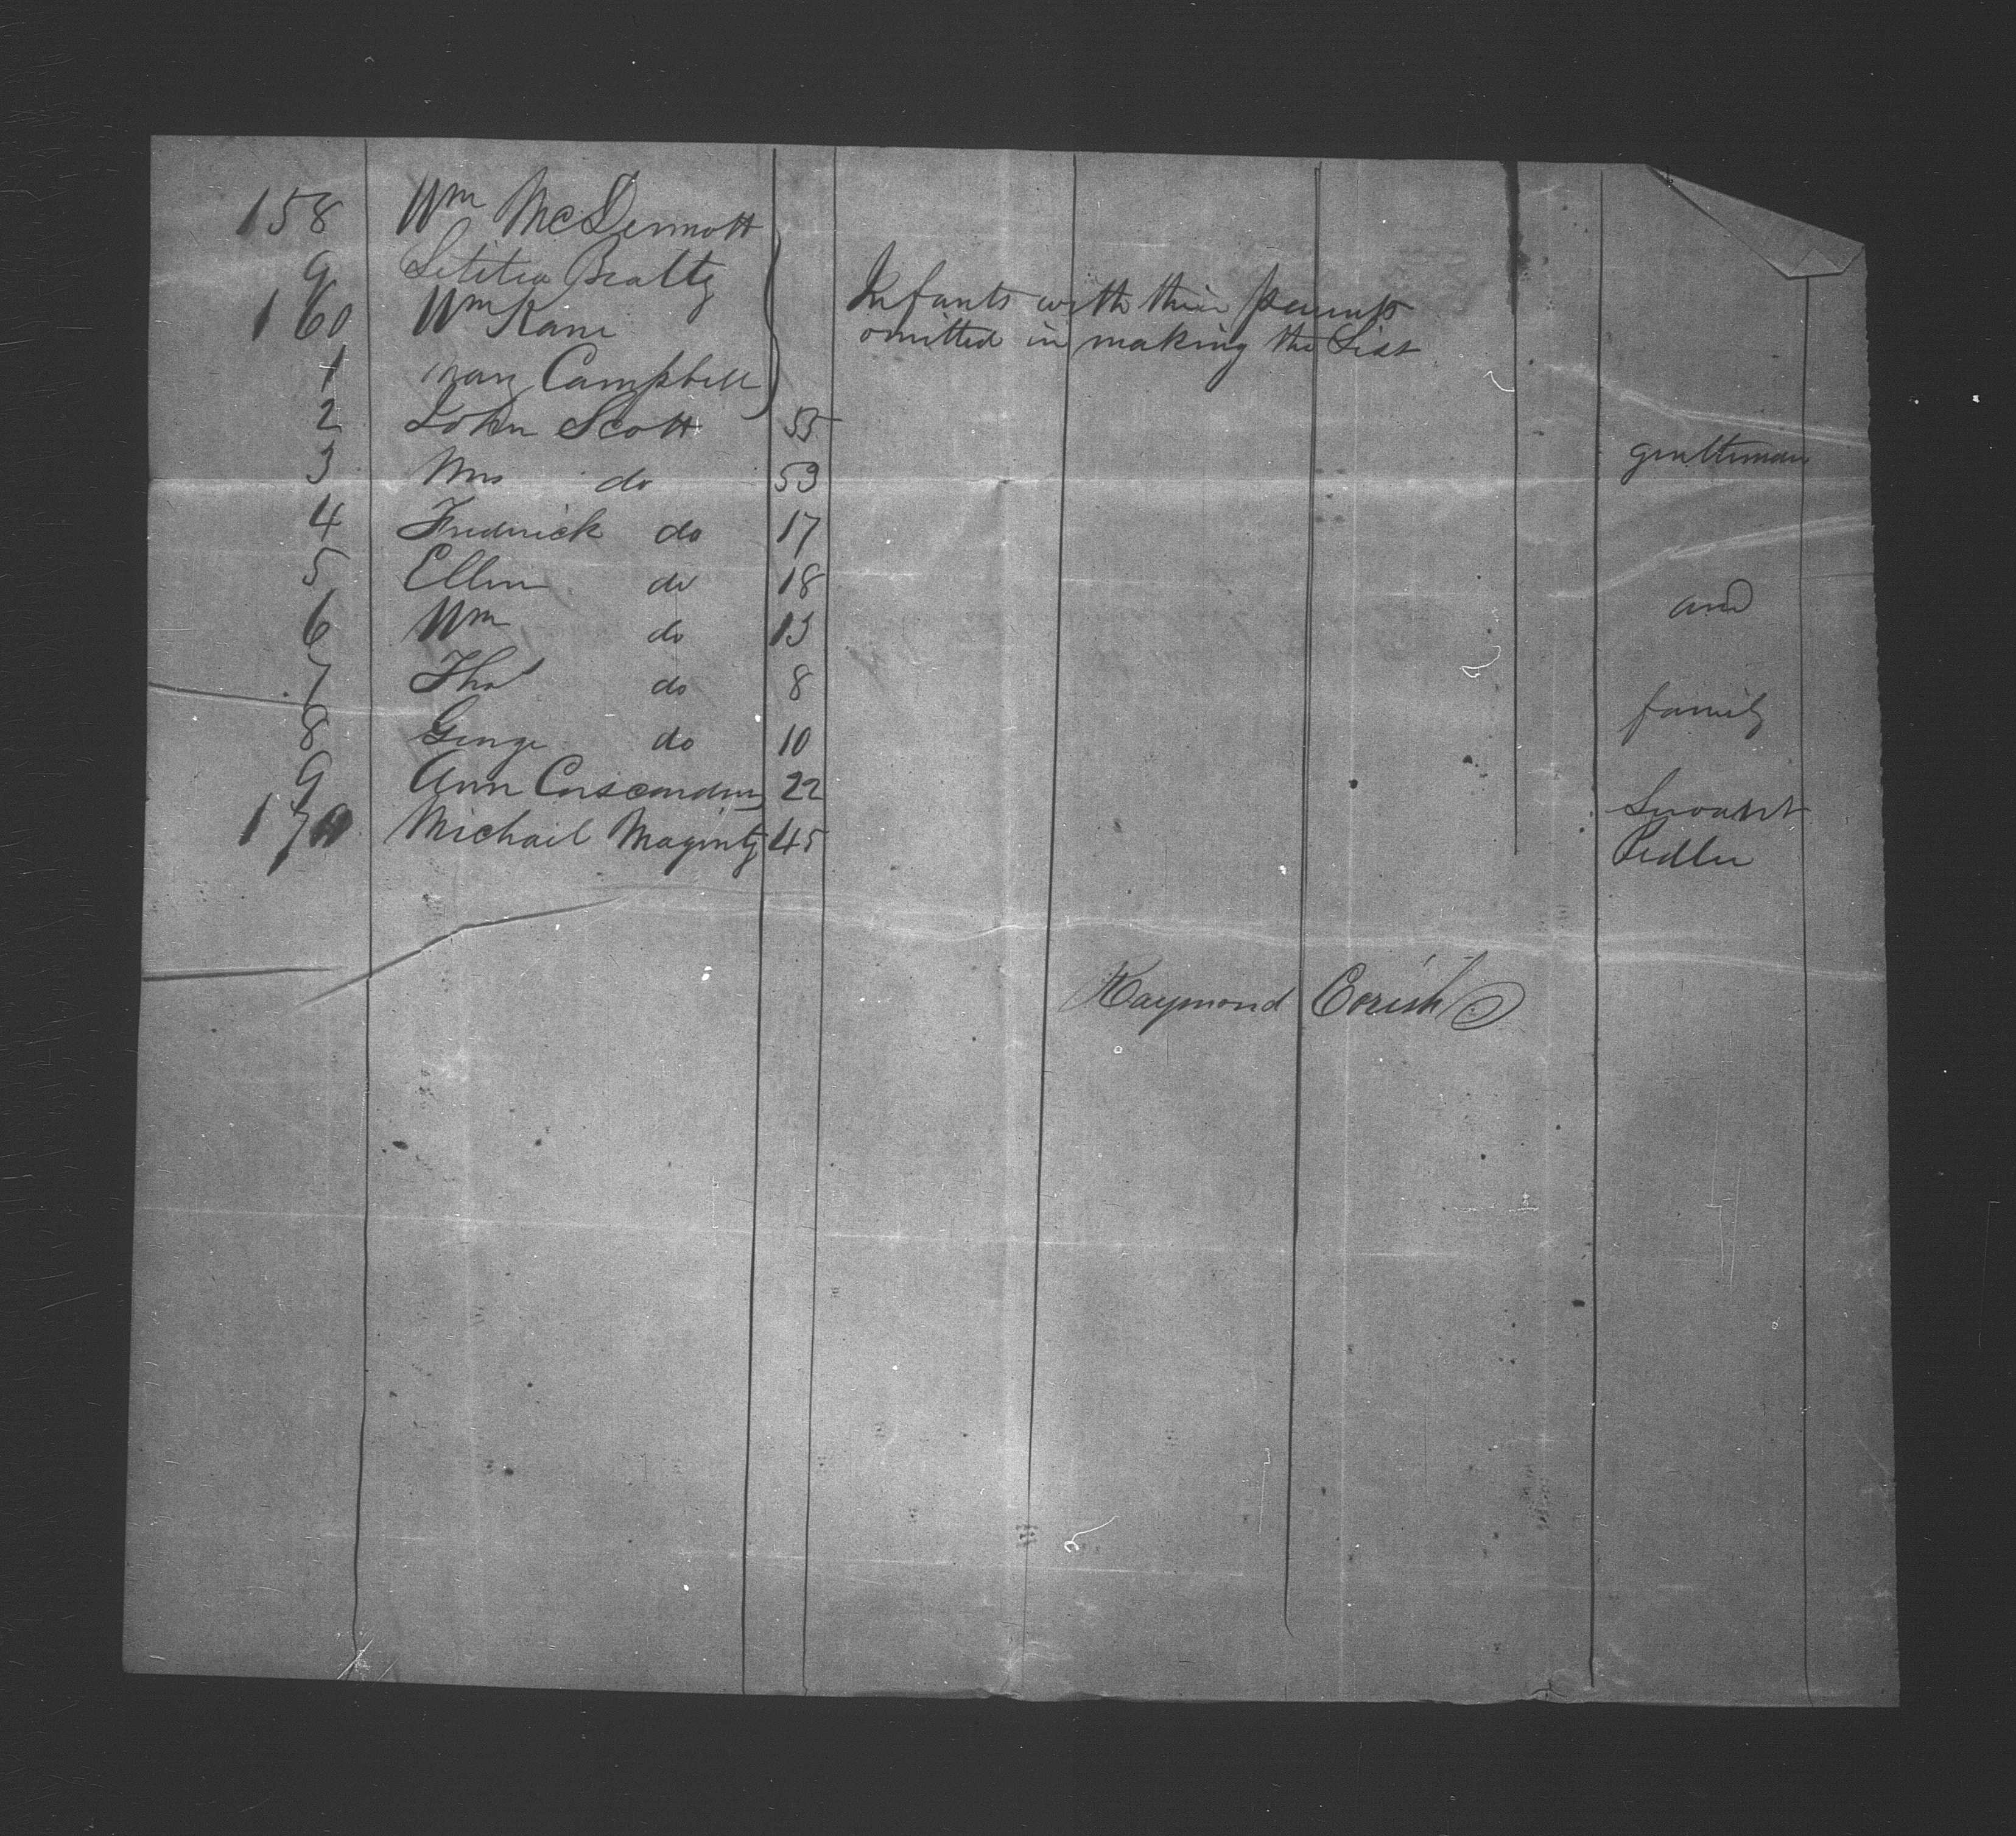 158 Wm McDermott
9 Letitia Beatty
160 Wm Kane
Infants with their parents
omitted in making the List
1 Mary Campbell
2 John Scott 55 gentleman
3 Mrs do 53
4 Frederick do 17
5 Ellen do 18 and
6 Wm do 13
7 Thos do 8 family
8 George do 10
9 Ann 22 Servant
170 Michail Maginty 45 Pedler
Raymond Corish